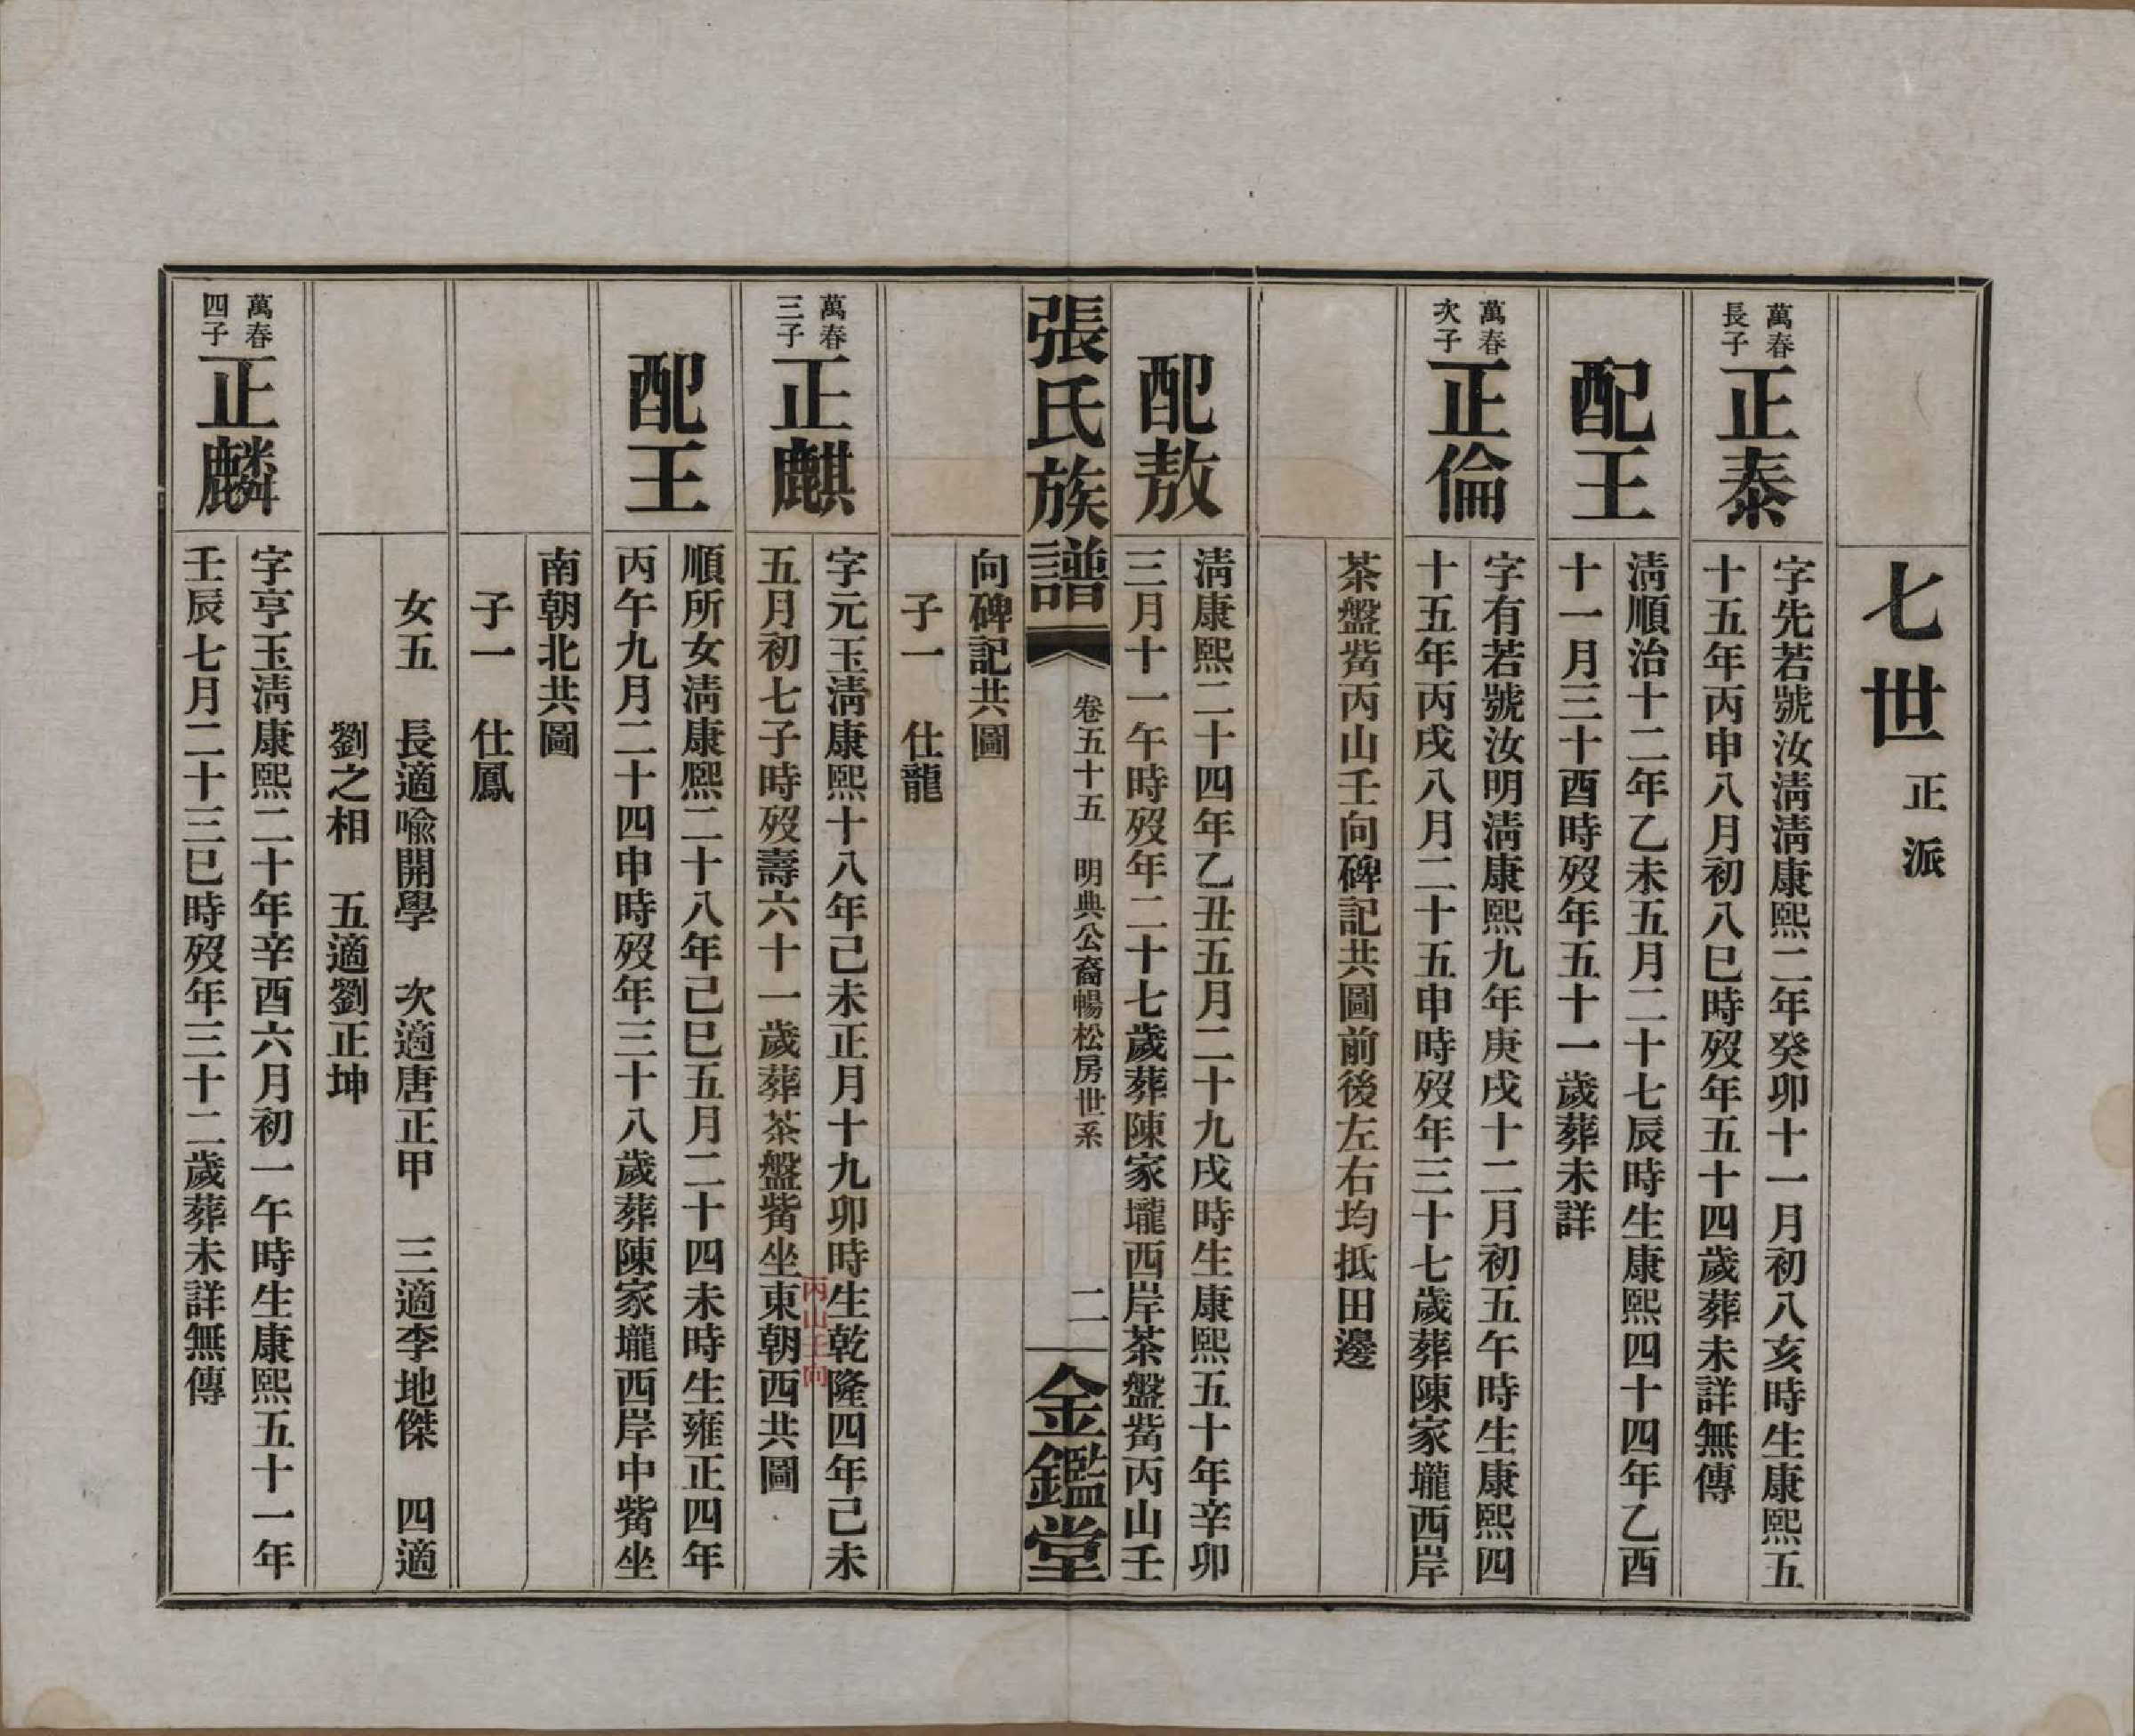 七世 正派
萬春
長子
正泰
字先若號汝淸淸康熙二年癸卯十一月初八亥時生康熙五
十五年丙申八月初八巳時歿年五十四歲葬未詳無傳
配王
淸順治十二年乙未五月二十七辰時生康熙四十四年乙酉
十一月三十酉時歿年五十一歲葬未詳
萬春
次子
正倫
字有若號汝明淸康熙九年庚戌十二月初五午時生康熙四
十五年丙戌八月二十五申時歿年三十七歲葬陳家壠西岸
茶盤觜丙山壬向碑記共圖前後左右均抵田邊
配敖
淸康熙二十四年乙丑五月二十九戌時生康熙五十年辛卯
三月十一午時歿年二十七歲葬陳家壠西岸茶盤觜丙山壬
張氏族譜 卷五十五 明典公裔暢松房世系 二 金鑑堂
向碑記共圖
子一 仕龍
萬春
三子
正麒
字元玉淸康熙十八年己未正月十九卯時生乾隆四年己未
丙山壬向
五月初七子時歿壽六十一歲葬茶盤觜坐東朝西共圖
配王
順所女淸康熙二十八年己巳五月二十四未時生雍正四年
丙午九月二十四申時歿年三十八歲葬陳家壠西岸中觜坐
南朝北共圖
子一 仕鳳
女五 長適喩開學 次適唐正甲 三適李地傑 四適
劉之相 五適劉正坤
萬春
四子
正麟
字亨玉淸康熙二十年辛酉六月初一午時生康熙五十一年
壬辰七月二十三巳時歿年三十二歲葬未詳無傳